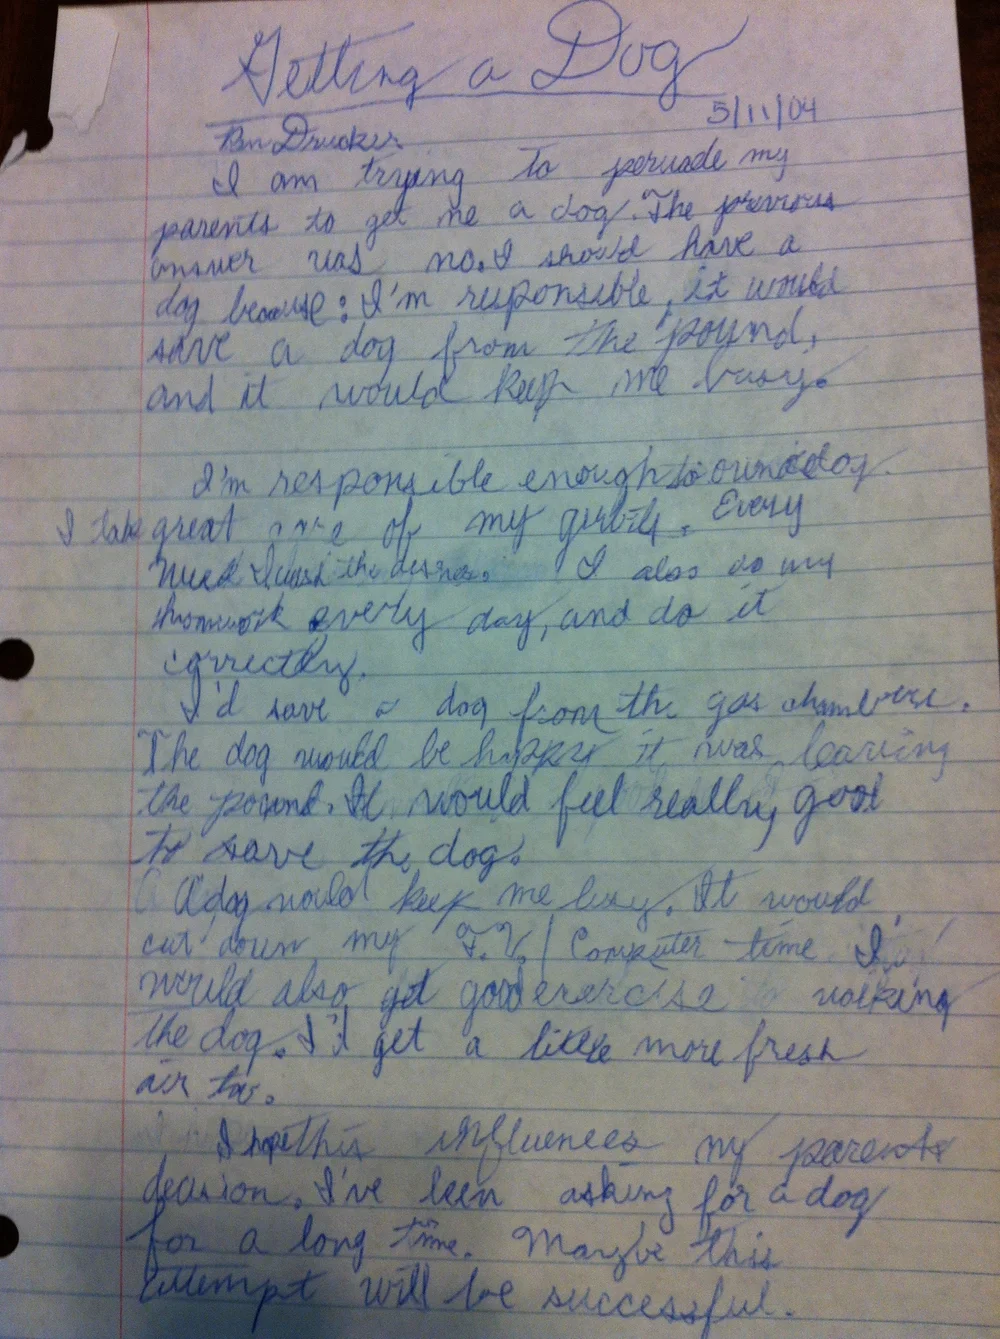 Getting a Dog
5/11/04
Ben Drucker
I am trying to persuade my
parents to get me a dog. The previous
answer was no. I should have a
dog because: I'm responsible, it would
save a dog from the pound,
and it would keep me busy.
I'm responsible enough to own a dog.
I take great care of my gerbils. Every
I wash the dishes. I also do my
homework every day, and do it
correctly.
I'd save a dog from the gas chambers.
The dog would be happy it was leaving
the pound. It would feel really good
to save the dog.
A dog would keep me busy. It would
cut down my T.V./Computer time. I
would also get good exercise walking
the dog. I'd get a little more fresh
air too.
I hope this influences my parents
decision. I've been asking for a dog
for a long time. Maybe this
attempt will be successful.